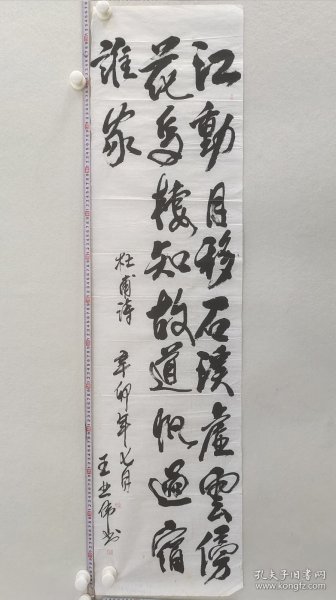 江動月移石溪虛雲傍
花鳥棲知故道帆過宿
誰家
杜甫詩 辛卯年七月
孔夫子旧书网